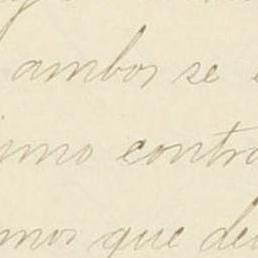 ambos se
imo contra
mos que de